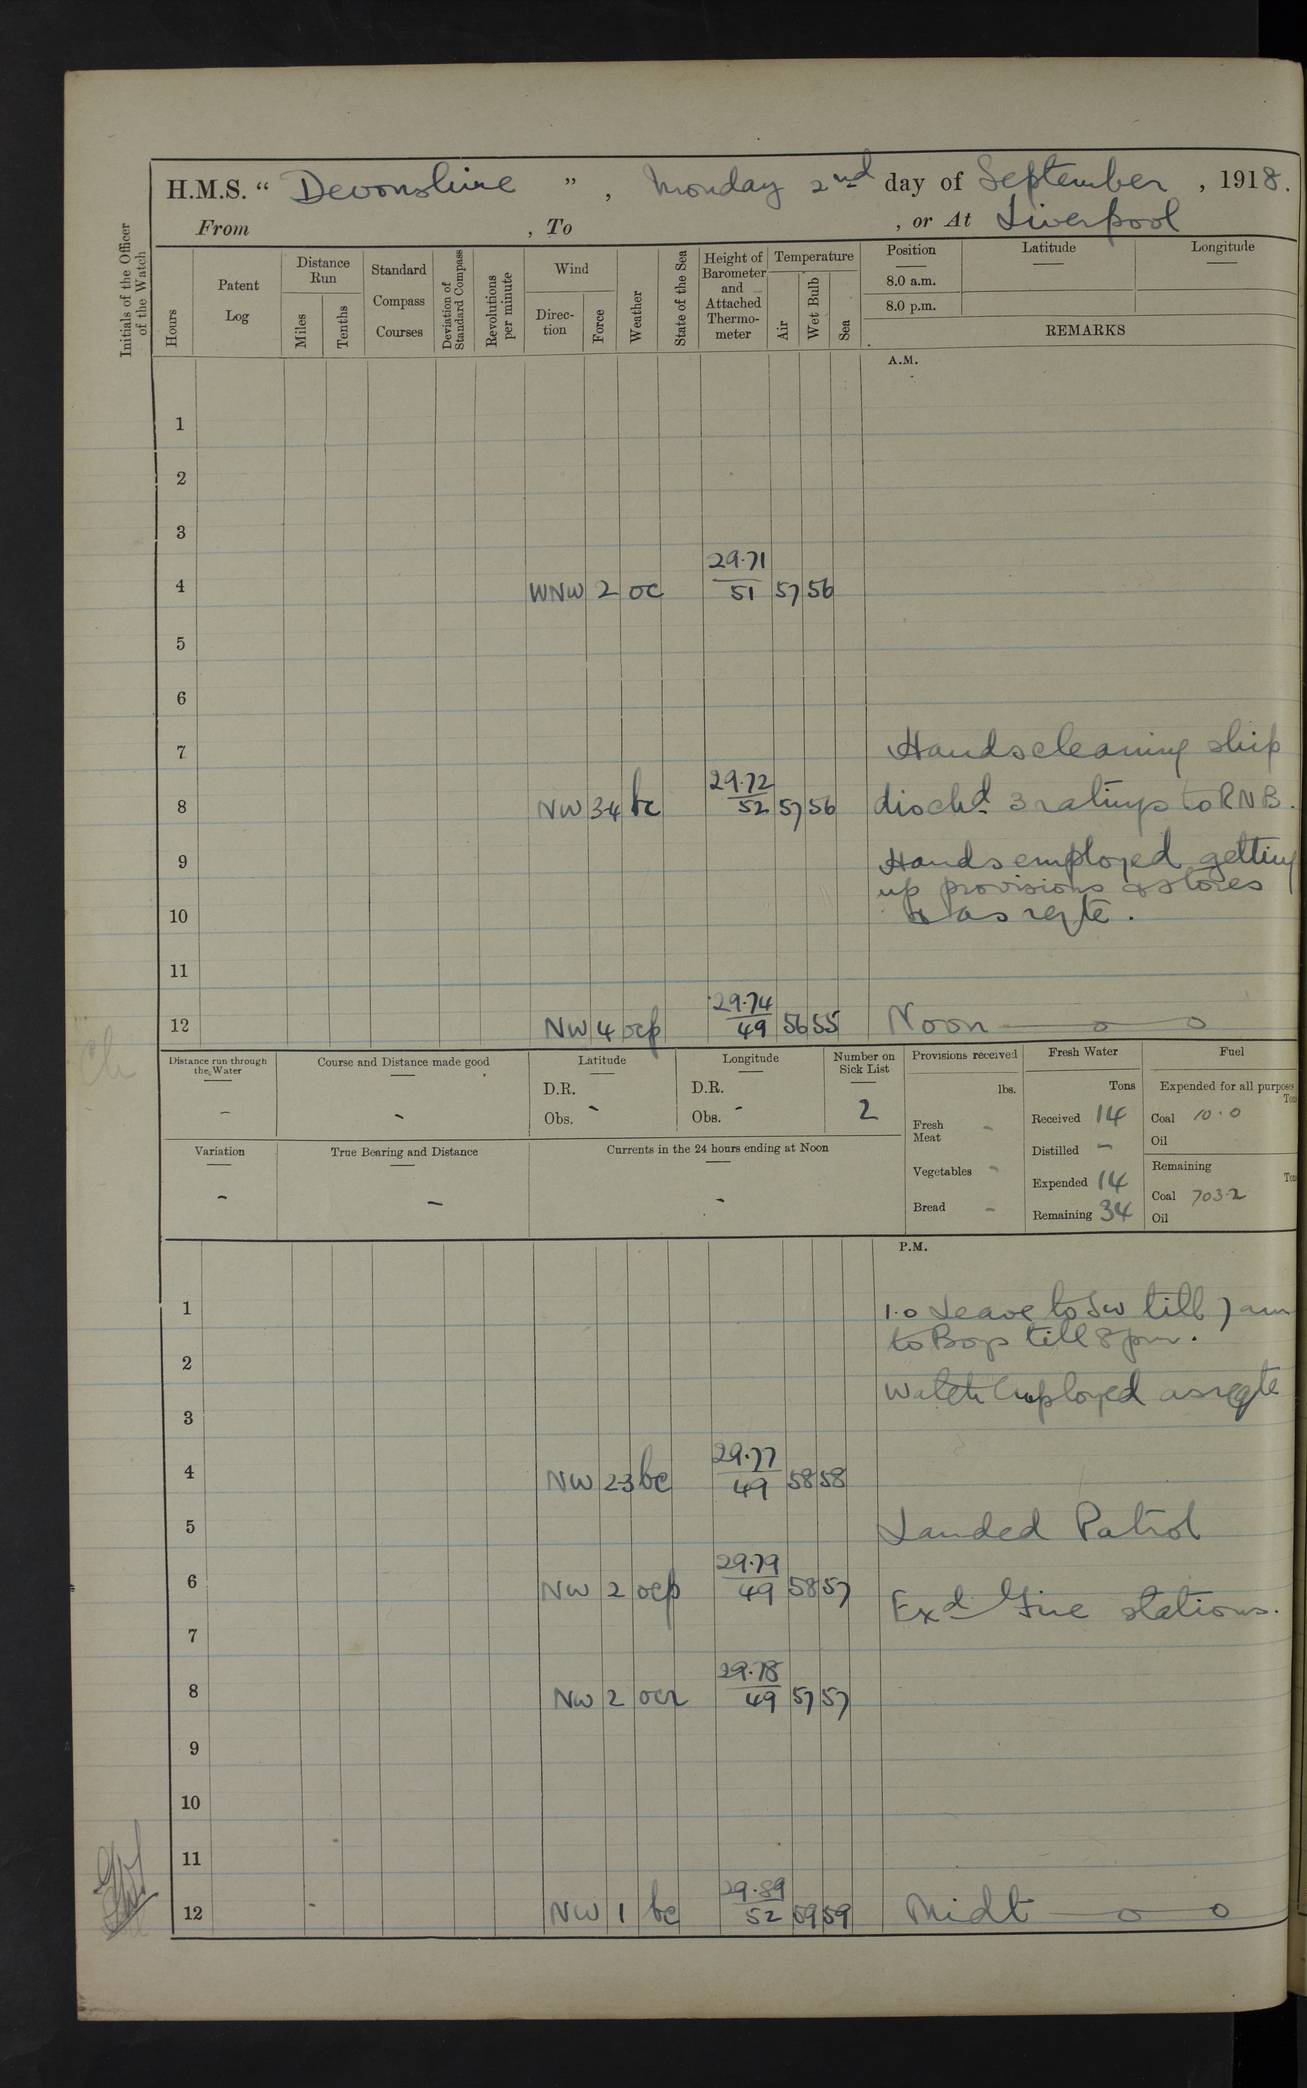 H.M.S. “ Devonshire ” , Monday 2nd day of September , 1918.
From , To , or At Liverpool
Initials of the Officer of the Watch
Hours
Patent Log
Distance Run
Miles
Tenths
Standard Compass Courses
Deviation of Standard Compass
Revolutions per minute
Wind
Direc-tion
Force
Weather
State of the Sea
Height of Barometer and Attached Thermo-meter
Temperature
Air
Wet Bulb
Sea
Position
8.0 a.m.
8.0 p.m.
Latitude
Longitude
REMARKS
A.M.
1
2
3
29.71
4 WNW 2 oc 51 57 56
5
6
7 Hands cleaning ship
29.72
8 NW 3-4 bc 52 57 56 dischd 3 ratings to RNB.
9 Hands employed getting
up provisions & stores
10 & as reqte.
11
29.74
12 NW 4 ocp 49 56 55 Noon — o — o
Distance run through the Water
-
Course and Distance made good
-
Latitude
D.R.
Obs. -
Longitude
D.R.
Obs. -
Number on Sick List
2
Provisions received
lbs.
Fresh Meat -
Vegetables -
Bread -
Fresh Water
Tons
Received 14
Distilled -
Expended 14
Remaining 34
Fuel
Expended for all purposes
Coal 10.0
Oil
Remaining
Coal 703.2
Oil
Variation
-
True Bearing and Distance
-
Currents in the 24 hours ending at Noon
-
P.M.
1 1.0 Leave to Sw till 7 am
to Boys till 8 pm.
2
Watch employed as reqte
3
29.77
4 NW 2-3 bc 49 58 58
5 Landed Patrol
29.79
6 NW 2 ocp 49 58 57
Exd Fire stations.
7
29.78
8 NW 2 ocr 49 57 57
9
10
11
29.89
12 NW 1 bc 52 59 59 Midt — o — o